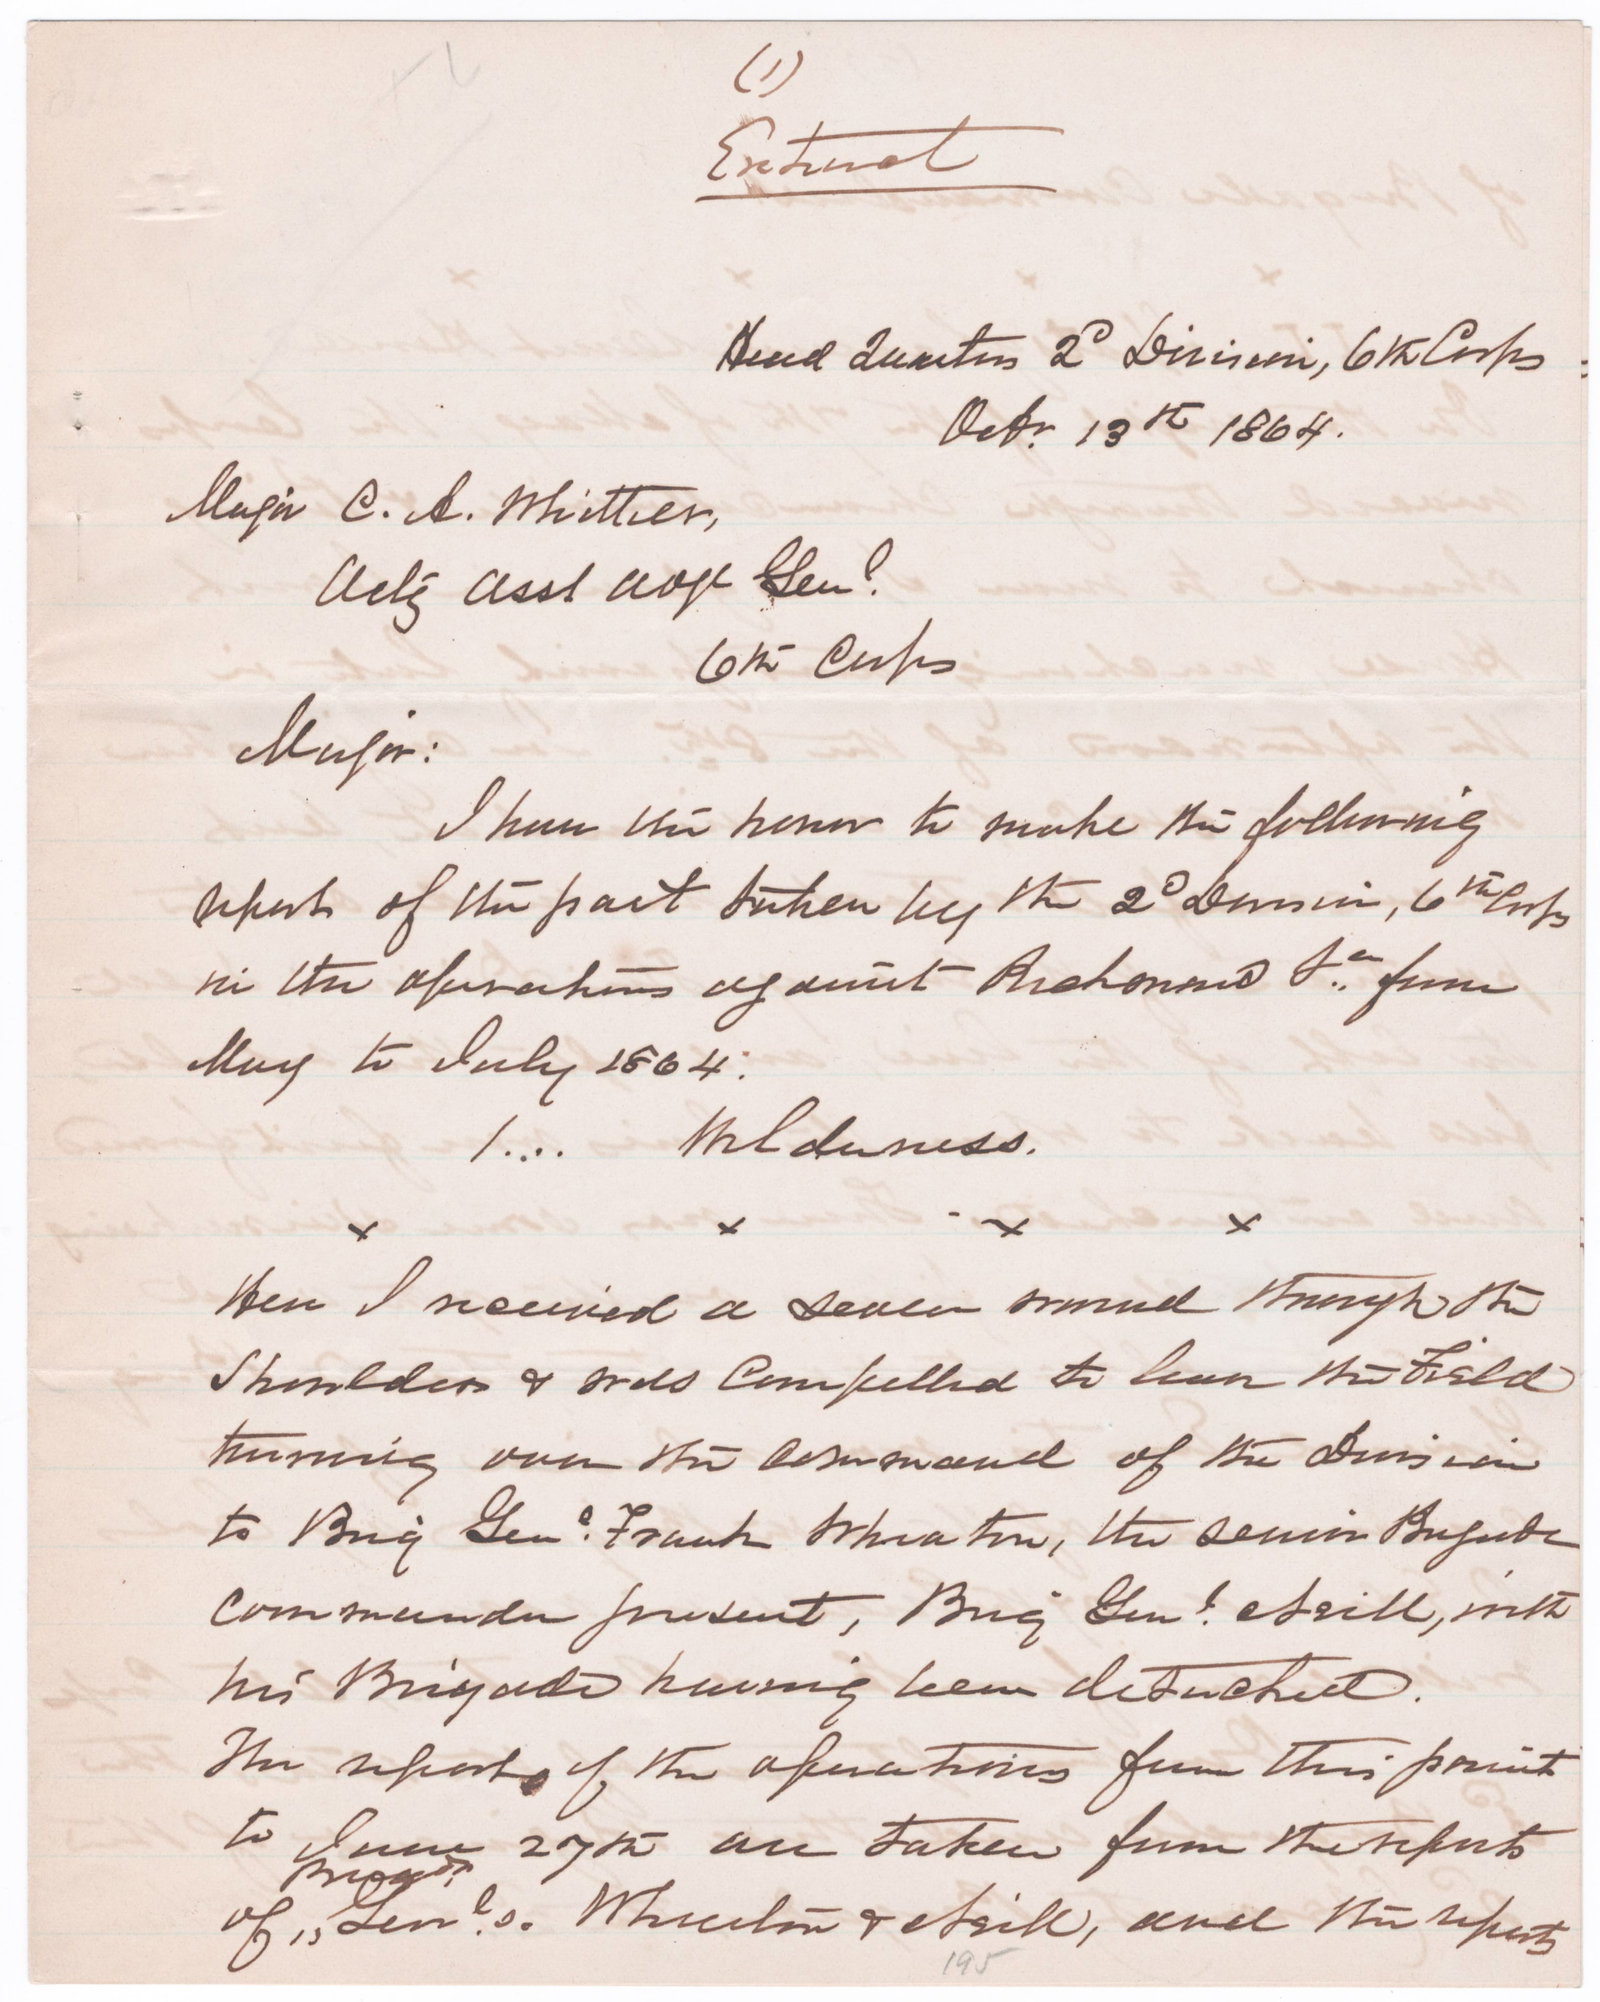 (1)
Extract
Head Quarters 2d Division, 6th Corps
Octr. 13th 1864.
Major C. A. Whittier,
Actg Asst Adjt Genl.
6th Corps
Major:
I have the honor to make the following
report of the part taken by the 2d Division, 6th Corps
in the operations against Richmond Va. from
May to July 1864:
1... Wilderness.
x x x x
Here I received a severe wound through the
Shoulder & was compelled to leave the Field
turning over the command of the Division
to Brig Genl. Frank Wheaton, the senior Brigade
commander present, Brig Genl. Neill, with
his Brigade having been detached.
The reports of the operations from this point
to June 27th are taken from the reports
of Genl.s. Wheaton & Neill, and the reports
195